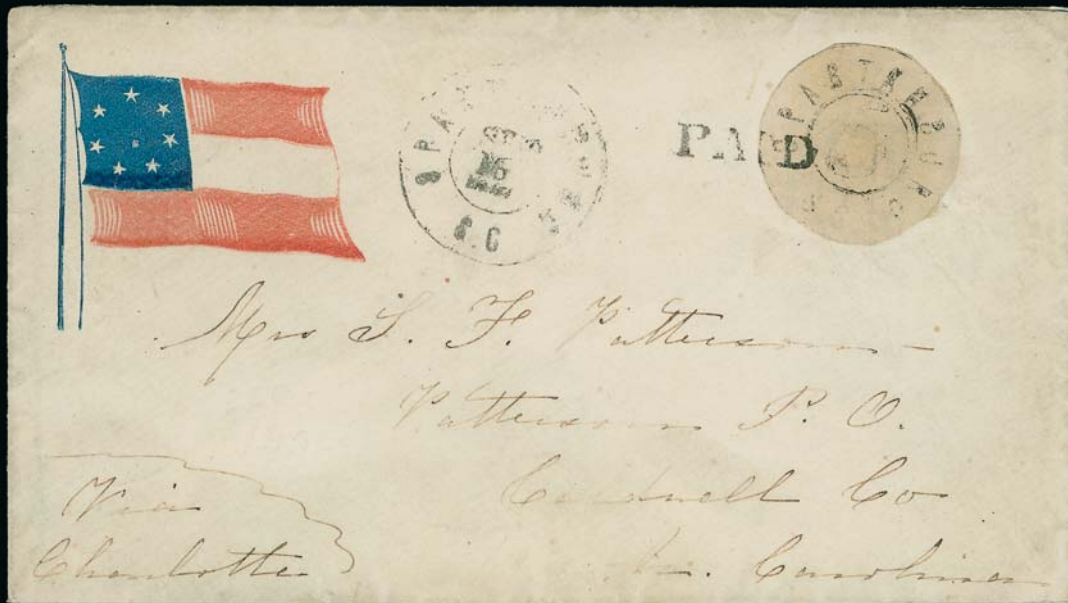 SPARTANBURG
S.C
PAID
SPARTANBURG
Mrs S. F. Patterson
Patterson P. O.
Caldwell Co
No. Carolina
Via
Charlotte